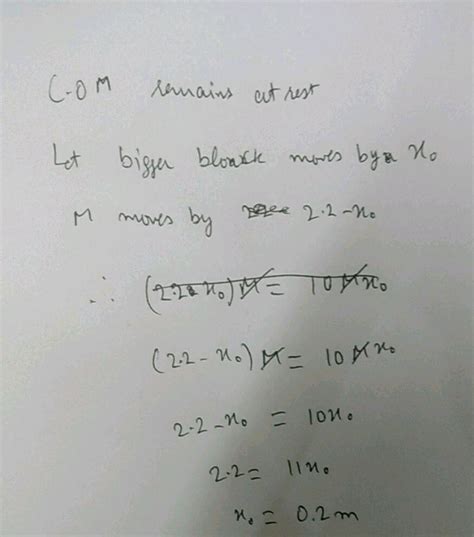 C-OM remains at rest
Let bigger block moves by x₀
M moves by 2.2-x₀
∴ (2.2-x₀)M = 10Mx₀
(2.2-x₀)M = 10Mx₀
2.2-x₀ = 10x₀
2.2 = 11x₀
x₀ = 0.2m